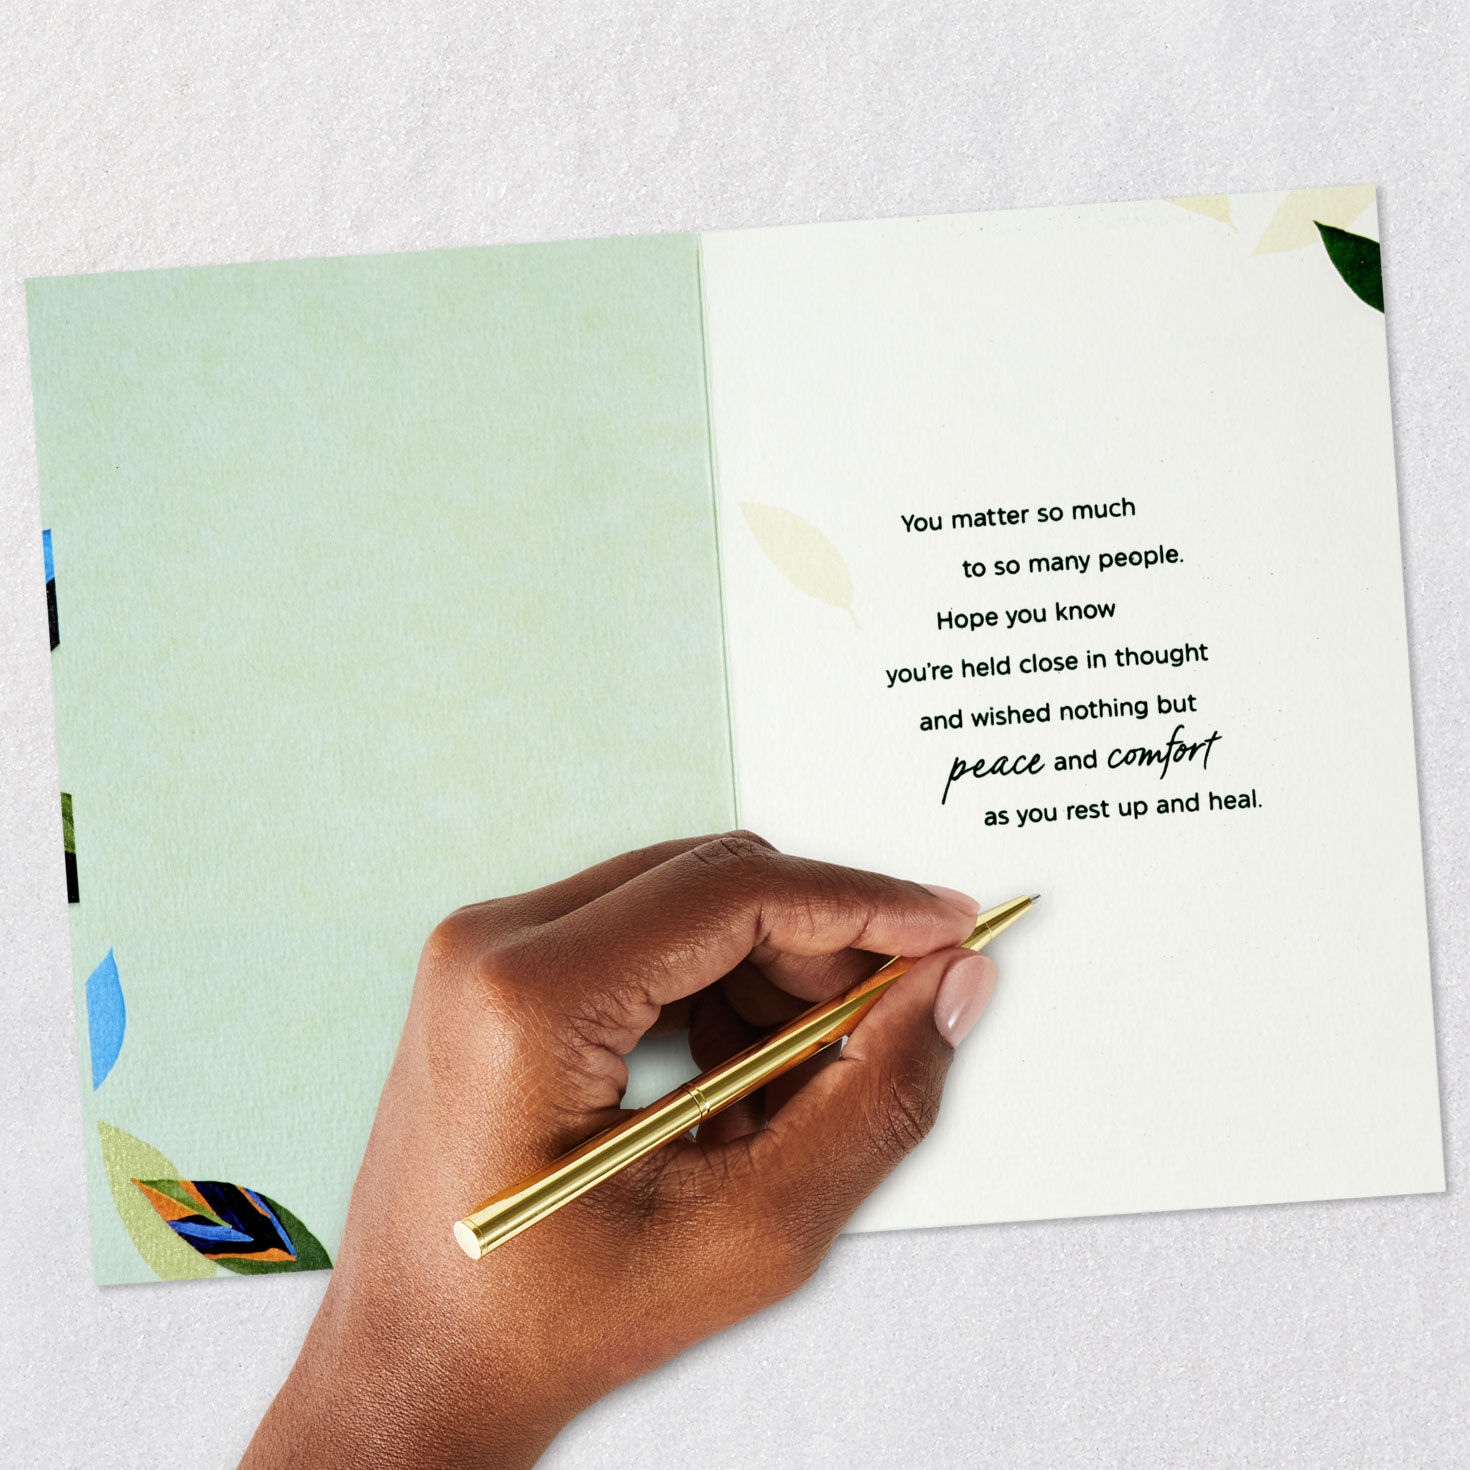 You matter so much
to so many people.
Hope you know
you're held close in thought
and wished nothing but
peace and comfort
as you rest up and heal.